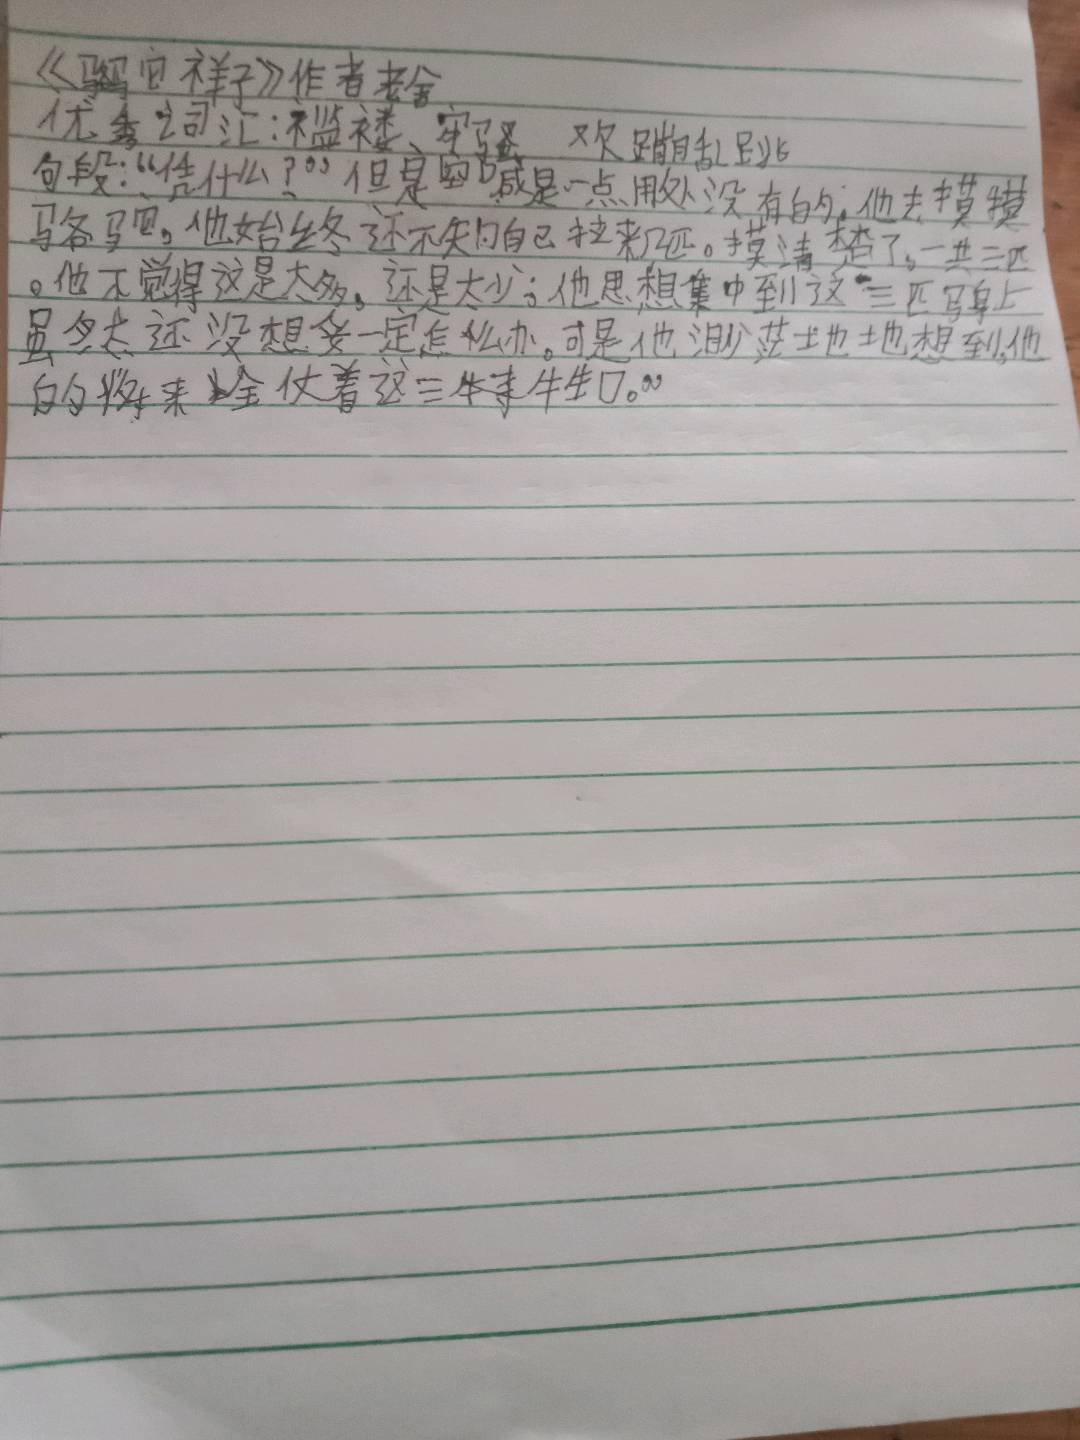 《骆驼祥子》作者老舍
优秀词汇：褴褛、牢骚 欢蹦乱跳
句段：“凭什么？”但是空喊是一点用处没有的。他去摸摸
骆驼。他始终还不知自己拉来几匹。摸清楚了，一共三匹
。他不觉得这是太多，还是太少；他思想集中到这三匹身上
虽然还没想妥一定怎么办。可是他渺茫地想到，他
的将来全仗着这三件牲口。”